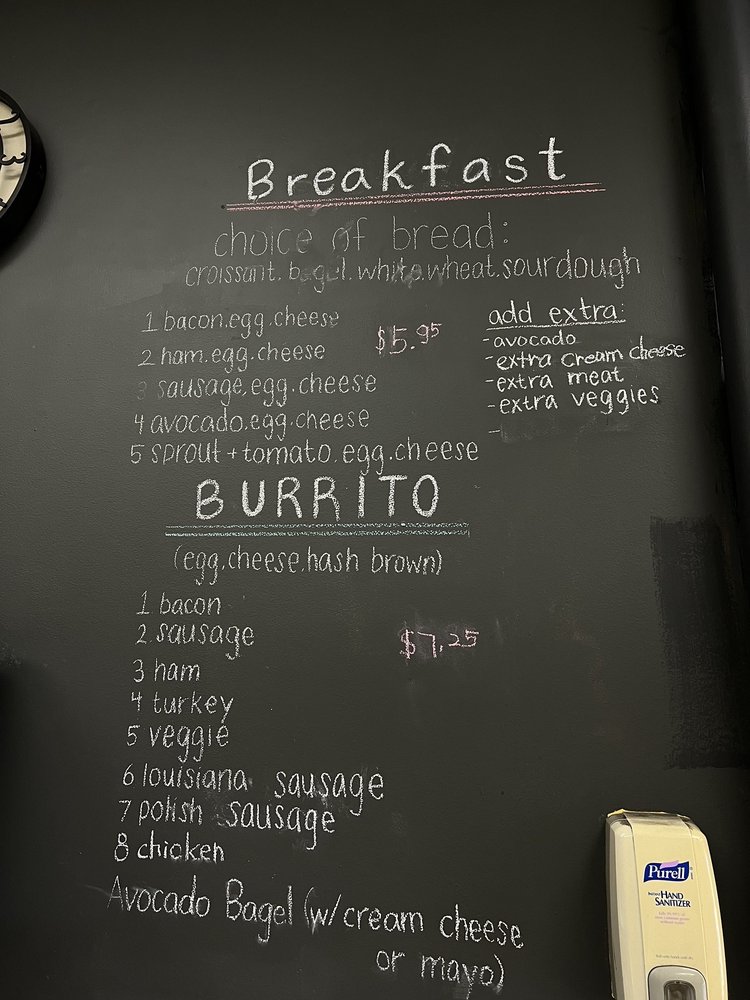 Breakfast
choice of bread:
croissant. bagel. white. wheat. sourdough
1 bacon.egg.cheese
2 ham.egg.cheese
3 sausage.egg.cheese
4 avocado.egg.cheese
5 sprout+tomato.egg.cheese
$5.95
add extra:
-avocado
-extra cream cheese
-extra meat
-extra veggies
-
BURRITO
(egg,cheese,hash brown)
1 bacon
2 sausage
3 ham
4 turkey
5 veggie
6 louisiana sausage
7 polish sausage
8 chicken
$7.25
Avocado Bagel (w/cream cheese
or mayo)
Purell
HAND
SANITIZER